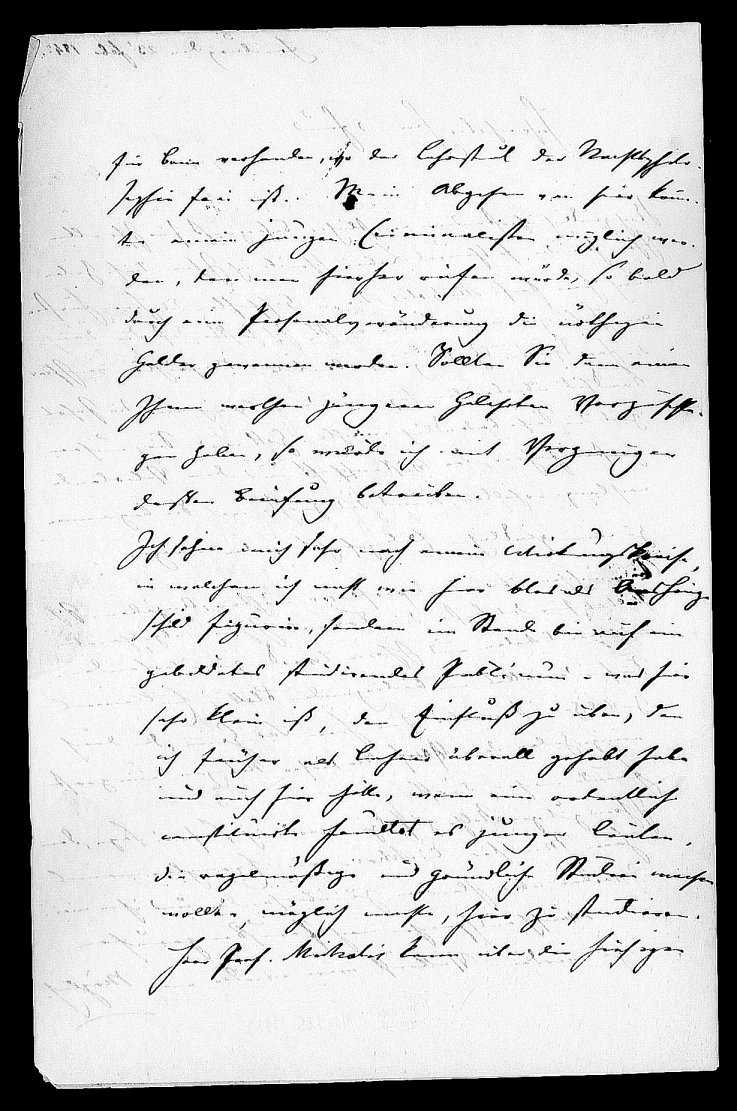 für Bern vorhanden, wo der Lehrstuhl der Rechtsphilo-
sophie frei ist. Mein Abgehen von hier könn-
te einem jungen Criminalisten möglich wer-
den, den man hierher rufen würde, so bald
durch eine Personalveränderung die nöthigen
Gelder gewonnen werden. Sollten Sie dann einen
Ihnen werthen jüngeren Gelehrten vorzuschla-
gen haben, so würde ich mit Vergnügen
dessen Berufung betreiben.
Ich sehne mich sehr nach einem Wirkungskreise,
in welchem ich nicht wie hier blos als Aushänge
schild figurire, sondern im Stande bin auf ein
gebildetes studirendes Publicum - was hier
sehr klein ist, den Einfluß zu üben, den
ich früher als Lehrer überall gehabt habe
und auch hier hätte, wenn eine ordentlich
constituirte Facultät es jungen Leuten,
die regelmäßige und gründliche Studien machen
wollen, möglich machte, hier zu studieren.
Herr Prof. kann über die hiesigen